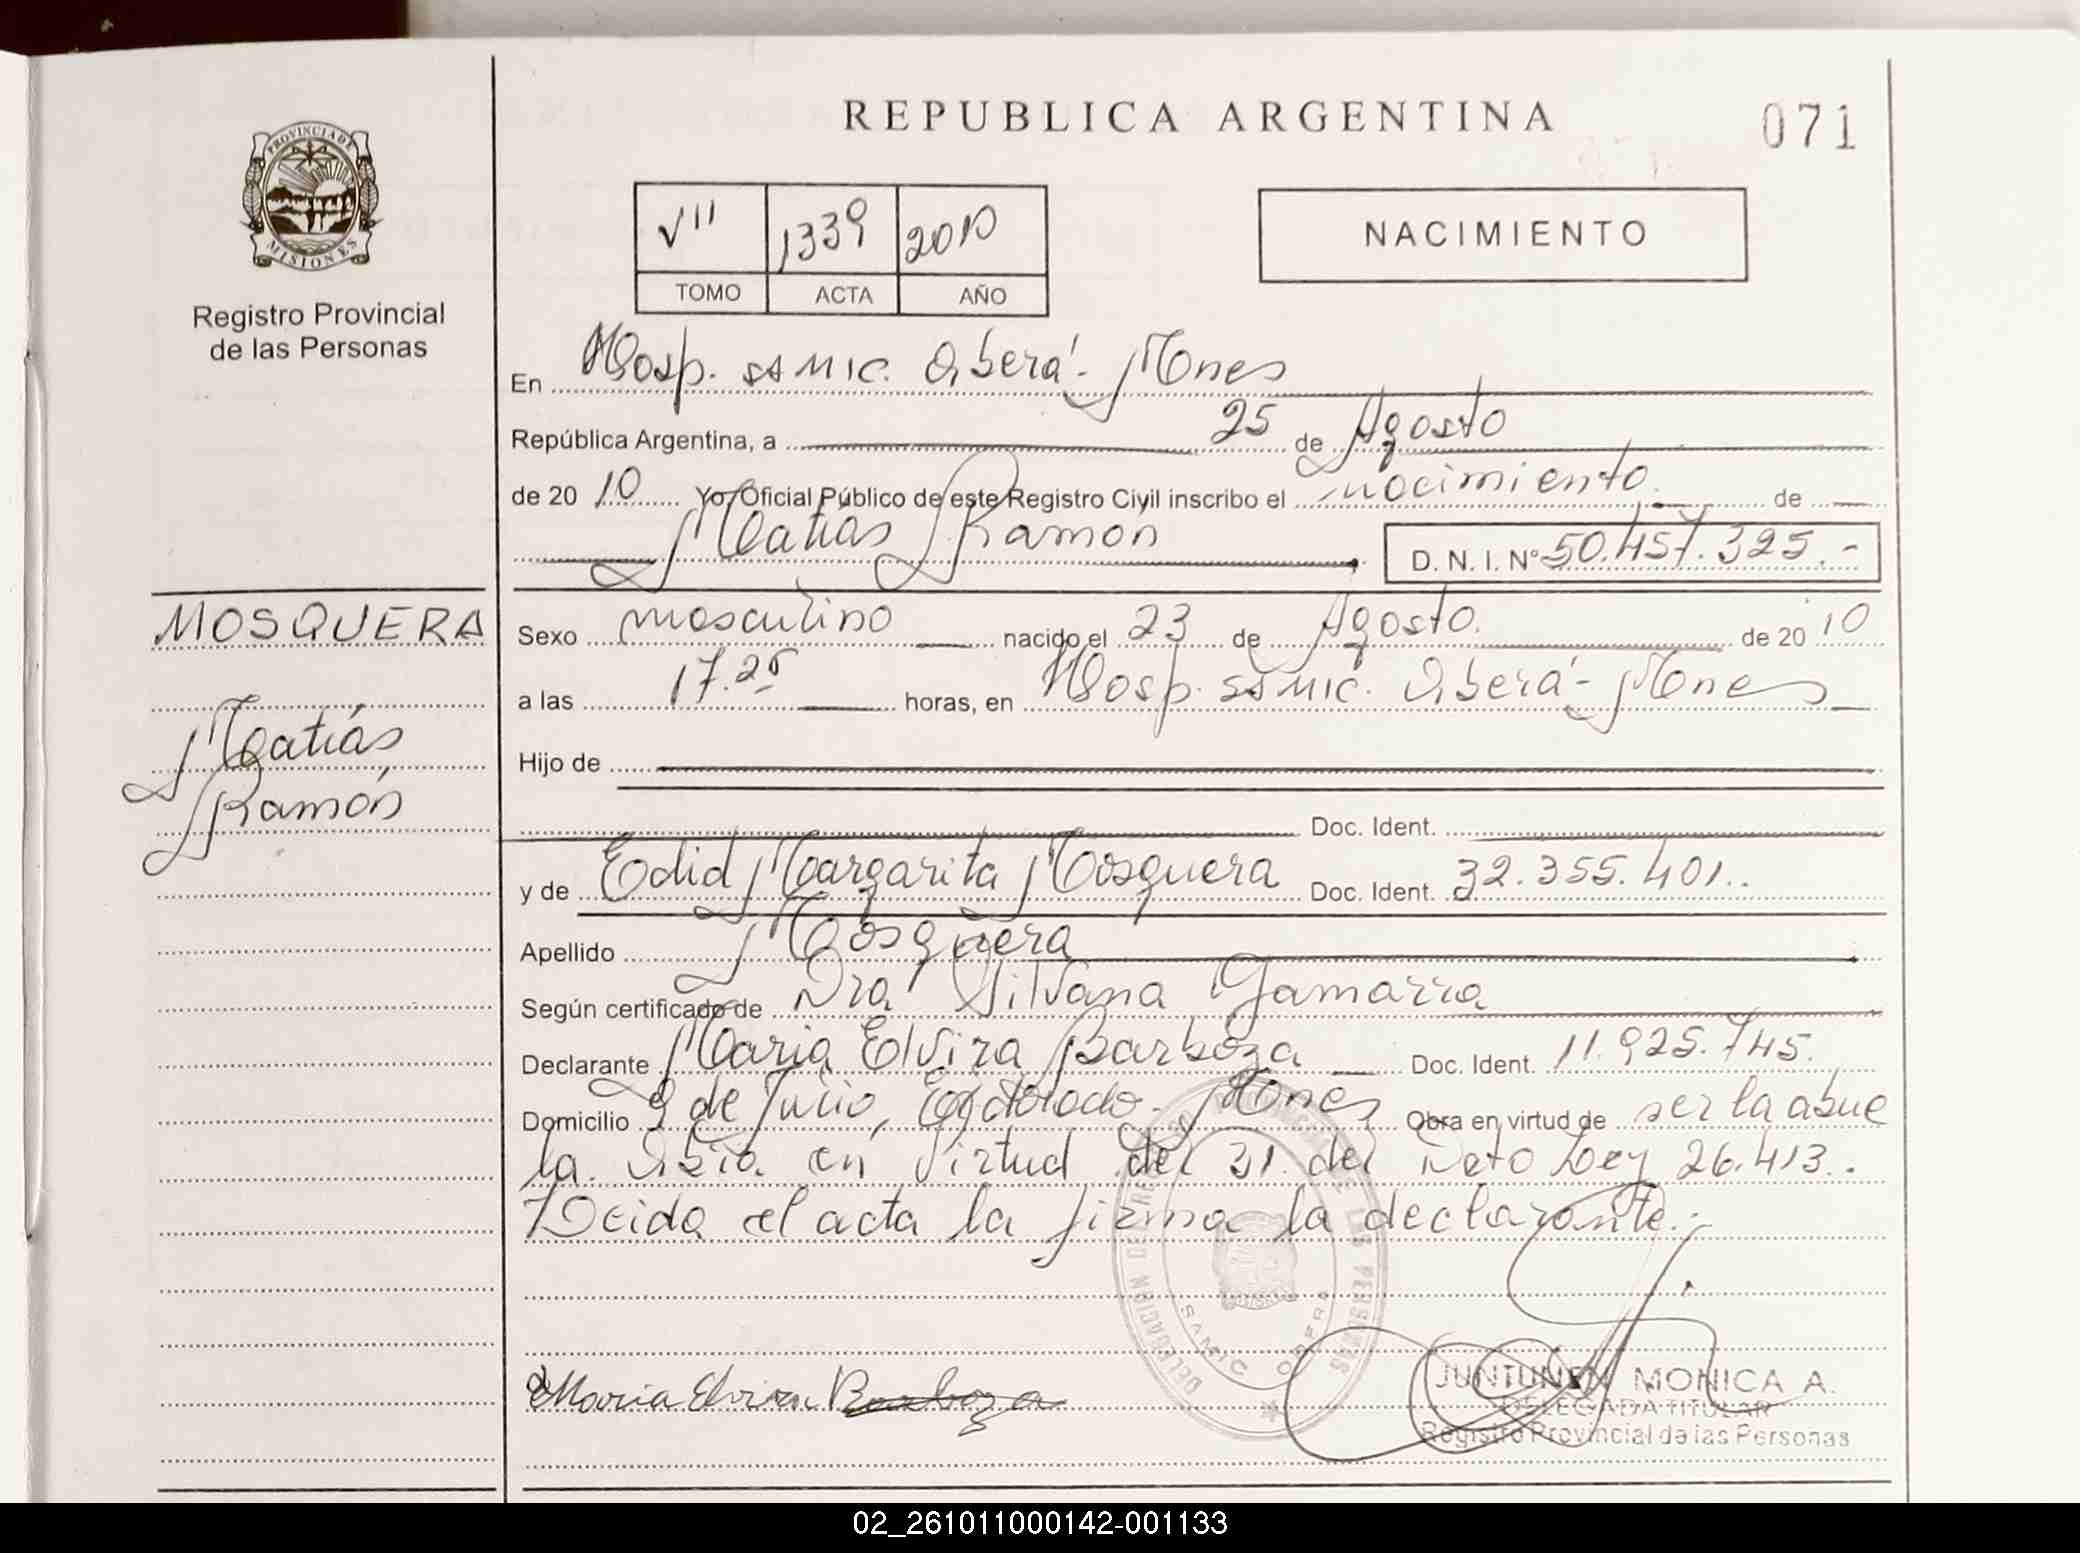 REPUBLICA ARGENTINA
071
PROVINCIA DE
MISIONES
Registro Provincial
de las Personas
VII 1339 2010
TOMO ACTA AÑO
NACIMIENTO
En Hosp. SAMIC. Oberá - Mnes
República Argentina, a 25 de Agosto
de 20 10 Yo Oficial Público de este Registro Civil inscribo el nacimiento de
Matías Ramón D. N. I. Nº 50.457.325.-
MOSQUERA
Matías
Ramón
Sexo masculino nacido el 23 de Agosto de 20 10
a las 17.25 horas, en Hosp. SAMIC. Oberá - Mnes
Hijo de
Doc. Ident.
y de Edid Margarita Mosquera Doc. Ident. 32.355.401..
Apellido Mosquera
Según certificado de Dra Silvana Gamarra
Declarante Maria Elvira Barboza Doc. Ident. 11.925.745.
Domicilio 9 de Julio, Eldorado - Mnes Obra en virtud de ser la abue
la. en virtud del 31. del Ley 26.413..
Leida el acta la firma la declarante.-
DELEGACION DE REGISTRO PROVINCIAL DE LAS PERSONAS
SAMIC OBERA
Maria Elvira Barboza
JUNTUNEN MONICA A.
DELEGADA TITULAR
Registro Provincial de las Personas
02_261011000142-001133